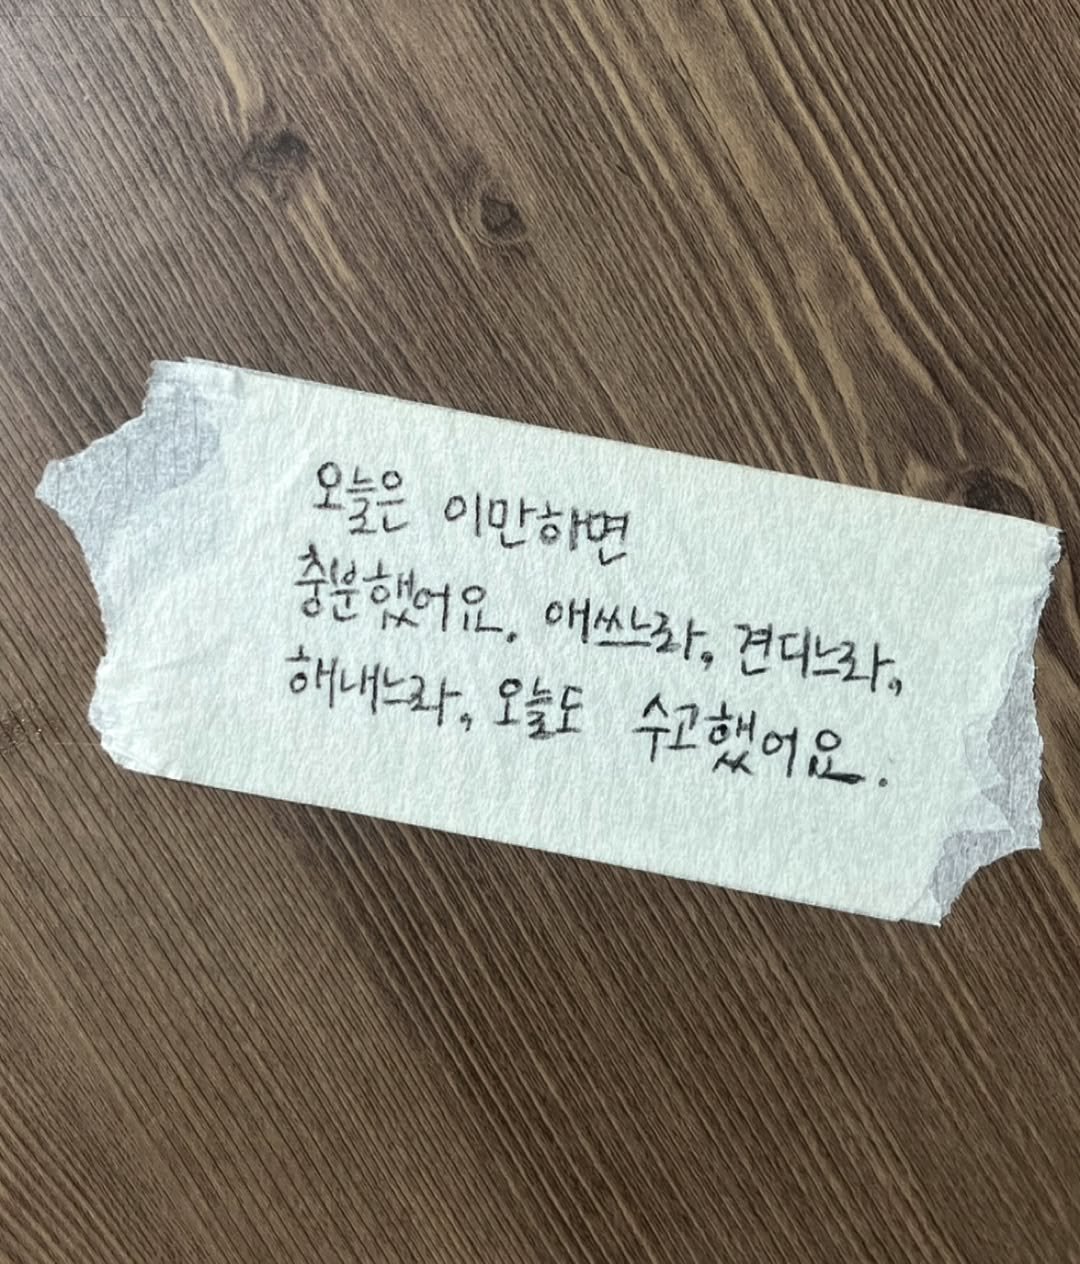 오늘은 이만하면
충분했어요. 애쓰느라, 견디느라,
해내느라, 오늘도 수고했어요.